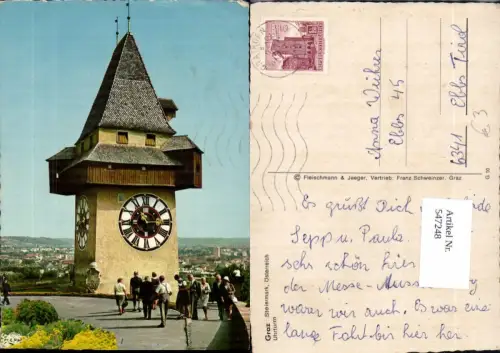 Anna Vuhrer
Ebbs 45
6341 Ebbs Tirol
© Fleischmann & Jaeger, Vertrieb: Franz Schweinzer, Graz
G 30
€ 3
Es grüßt Dich
Sepp u. Paula
sehr schön hier
der Messe-Aus
waren wir auch. Es war eine
lange Fahrt bis hier her.
Artikel Nr.
547248
Graz Steiermark, Österreich
Uhrturm